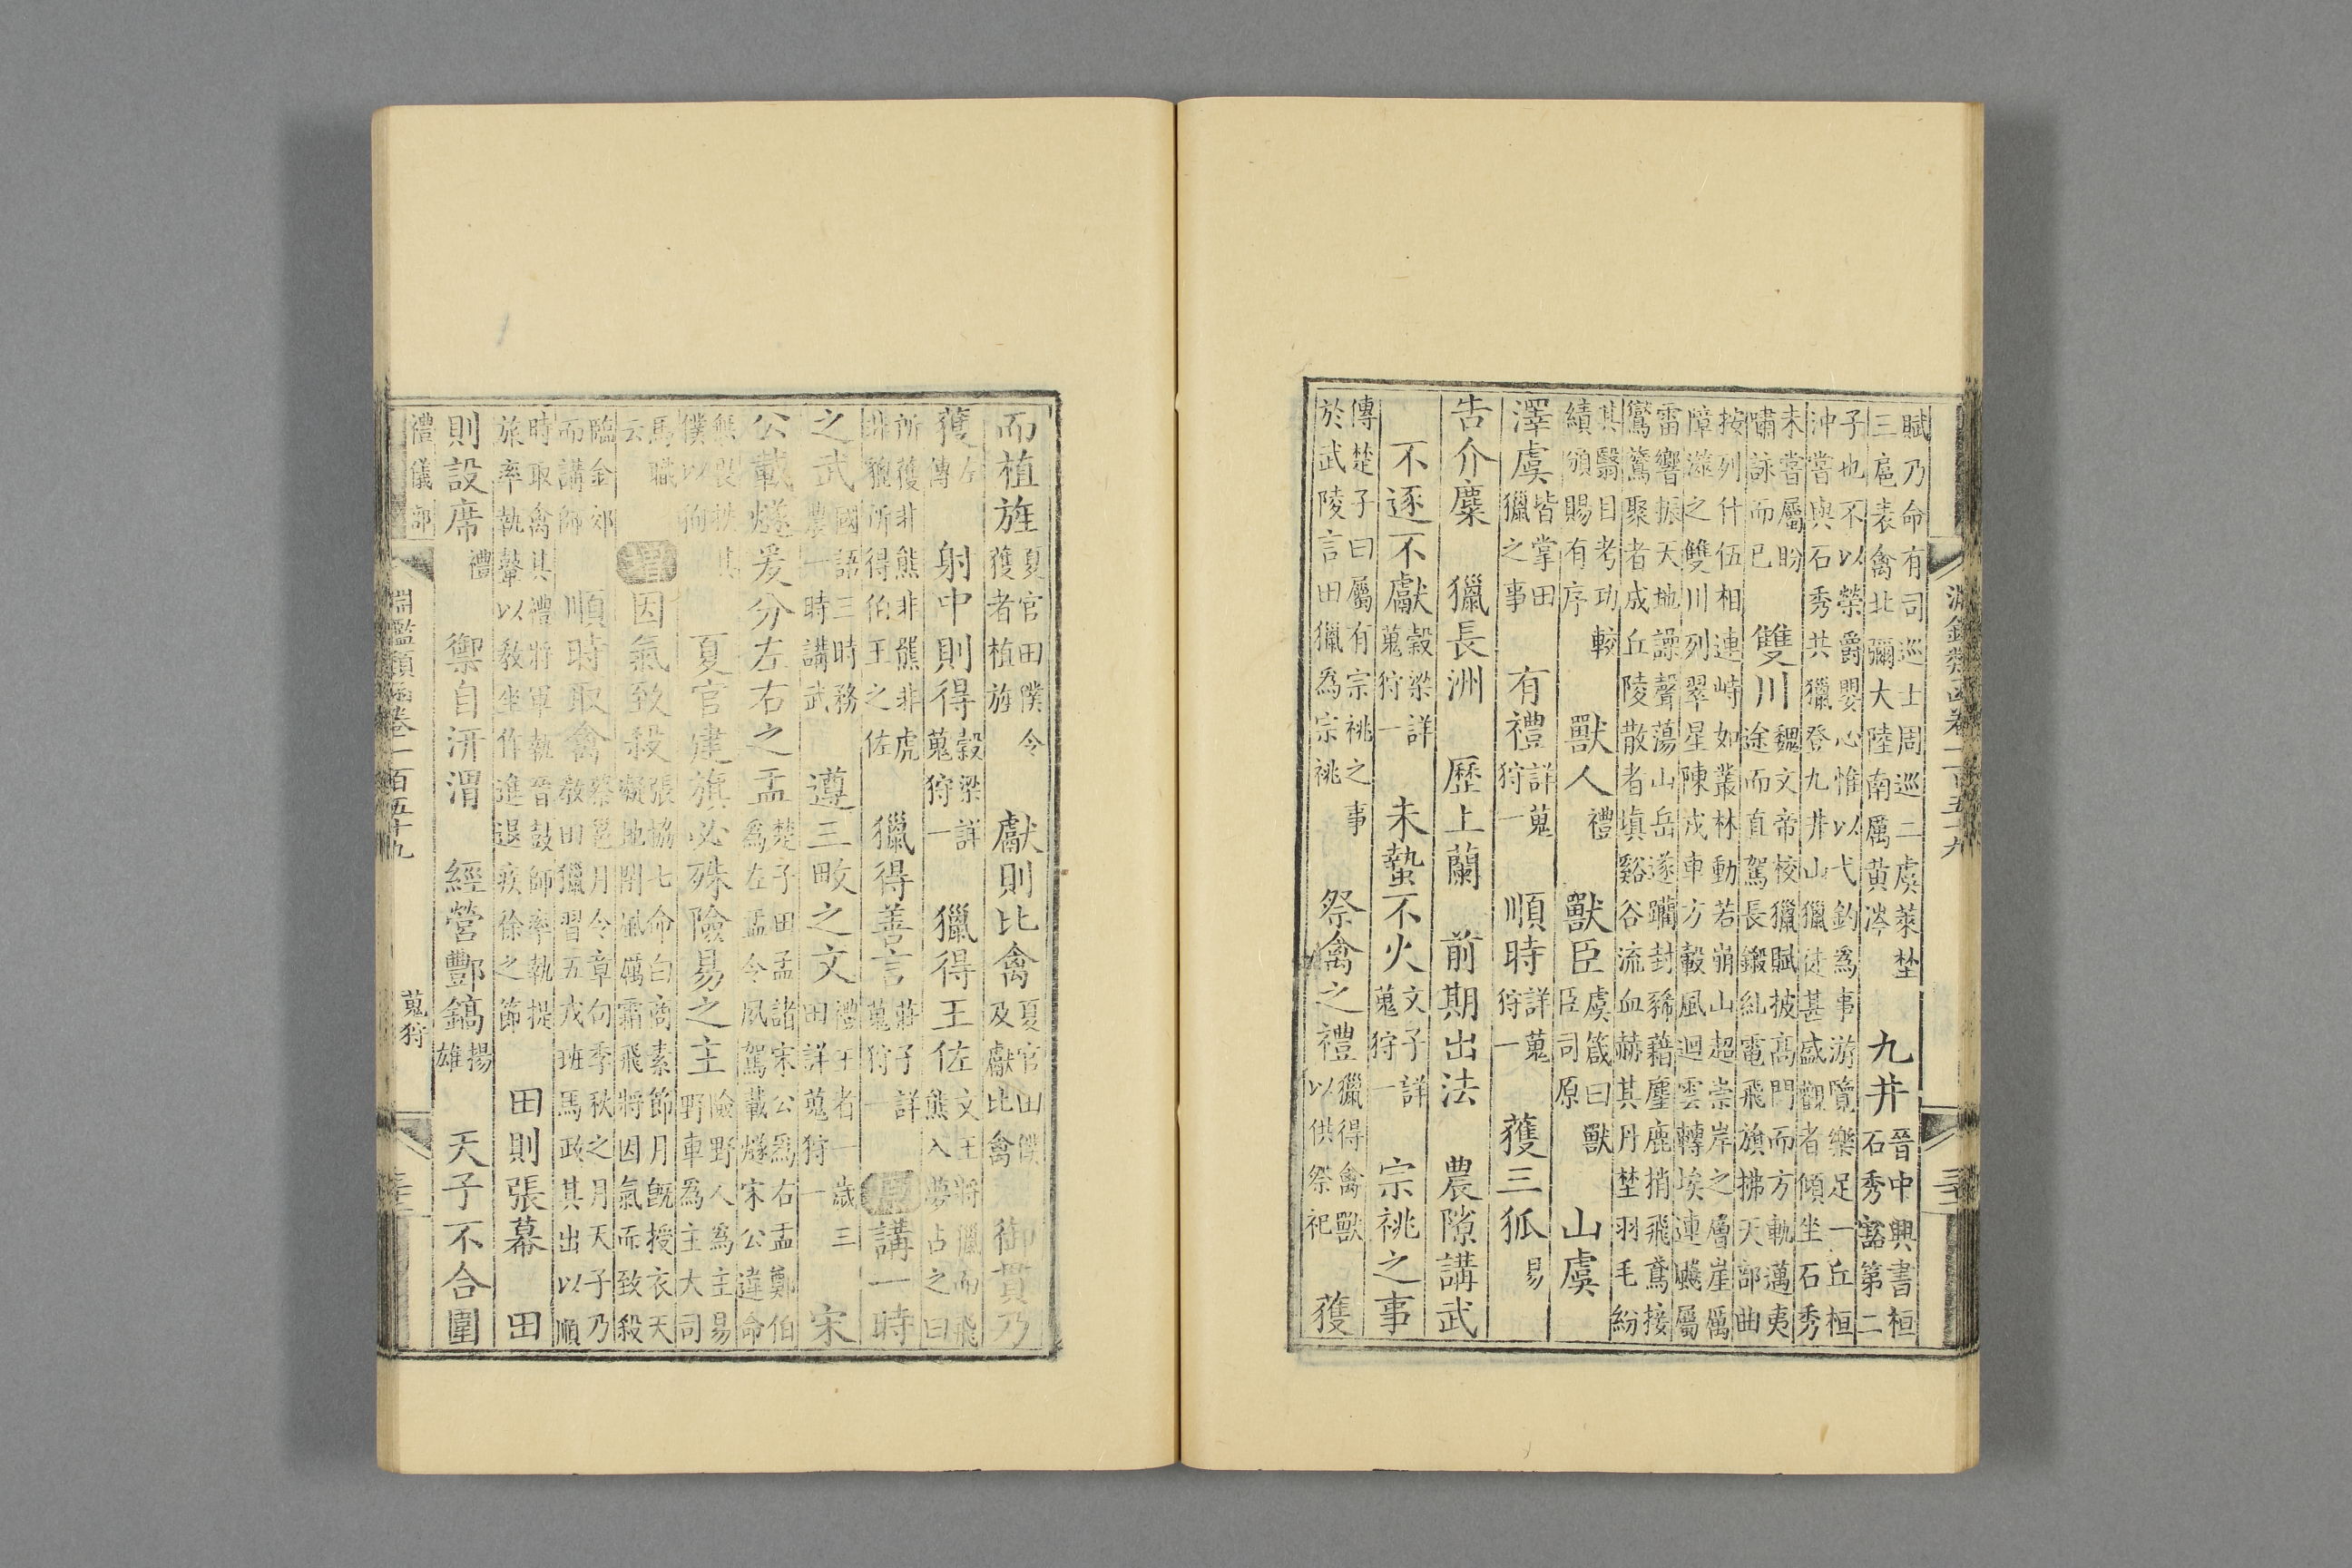 淵鑑類函卷一百五十九
賦乃命有司巡士周巡二虞萊埜
三扈表禽北彌大陸南厲黃涔
九井
晉中興書桓
石秀豁第二
子也不以榮爵嬰心惟以弋釣為事游覽樂足一丘桓
沖嘗與石秀共獵登九井山獵徒甚盛觀者傾坐石秀
未嘗屬盼
嘯詠而已
雙川
魏文帝校獵賦披高門而方軌邁夷
途而直駕長鎩糺電飛旗拂天部曲
按列什伍相連峙如叢林動若崩山超崇岸之層崖厲
障澨之雙川列翠星陳戎車方轂風迴雲轉埃連飇屬
雷響振天地譟聲蕩山岳遂躪封豨藉麈鹿捎飛鳶接
鸑鷟聚者成丘陵散者塡谿谷流血赫其丹埜羽毛紛
其翳目考功較
績頒賜有序
獸人
禮
獸臣
虞箴曰獸
臣司原
山虞
澤虞
皆掌田
獵之事
有禮
詳蒐
狩一
順時
詳蒐
狩一
獲三狐
易
告介麋 獵長洲 歷上蘭 前期出法 農隙講武
不逐不獻
穀梁詳
蒐狩一
未蟄不火
文子詳
蒐狩一
宗祧之事
傳楚子曰屬有宗祧之事
於武陵言田獵為宗祧
祭禽之禮
獵得禽獸
以供祭祀
獲
而植旌
夏官田僕令
獲者植旌
獻則比禽
夏官田僕
及獻比禽
御貫乃
獲
左
傳
射中則得
穀梁詳
蒐狩一
獵得王佐
文王將獵而飛
熊入夢占之曰
所獲非熊非羆非虎
非貔所得伯王之佐
獵得善言
莊子詳
蒐狩一
原
講一時
之武
國語三時務
農一時講武
遵三畋之文
禮王者一歲三
田詳蒐狩一
宋
公載燧爰分左右之盂
楚子田孟諸宋公為右盂鄭伯
為左盂令夙駕載燧宋公違命
無畏抶其
僕以徇
夏官建旗必殊險易之主
險野人為主易
野車為主大司
馬職
云
增
因氣致殺
張協七命白商素節月既授衣天
凝地閉風厲霜飛將因氣而致殺
臨金郊
而講師
順時取禽
蔡邕月令章句季秋之月天子乃
教田獵習五戎班馬政其出以順
時取禽其禮將軍執晉鼓師率執提
旅率執鼙以教坐作進退疾徐之節
田則張幕 田
則設席
禮
禦自汧渭 經營酆鎬
揚
雄
天子不合圍
禮儀部
淵鑑類函卷一百五十九
蒐狩